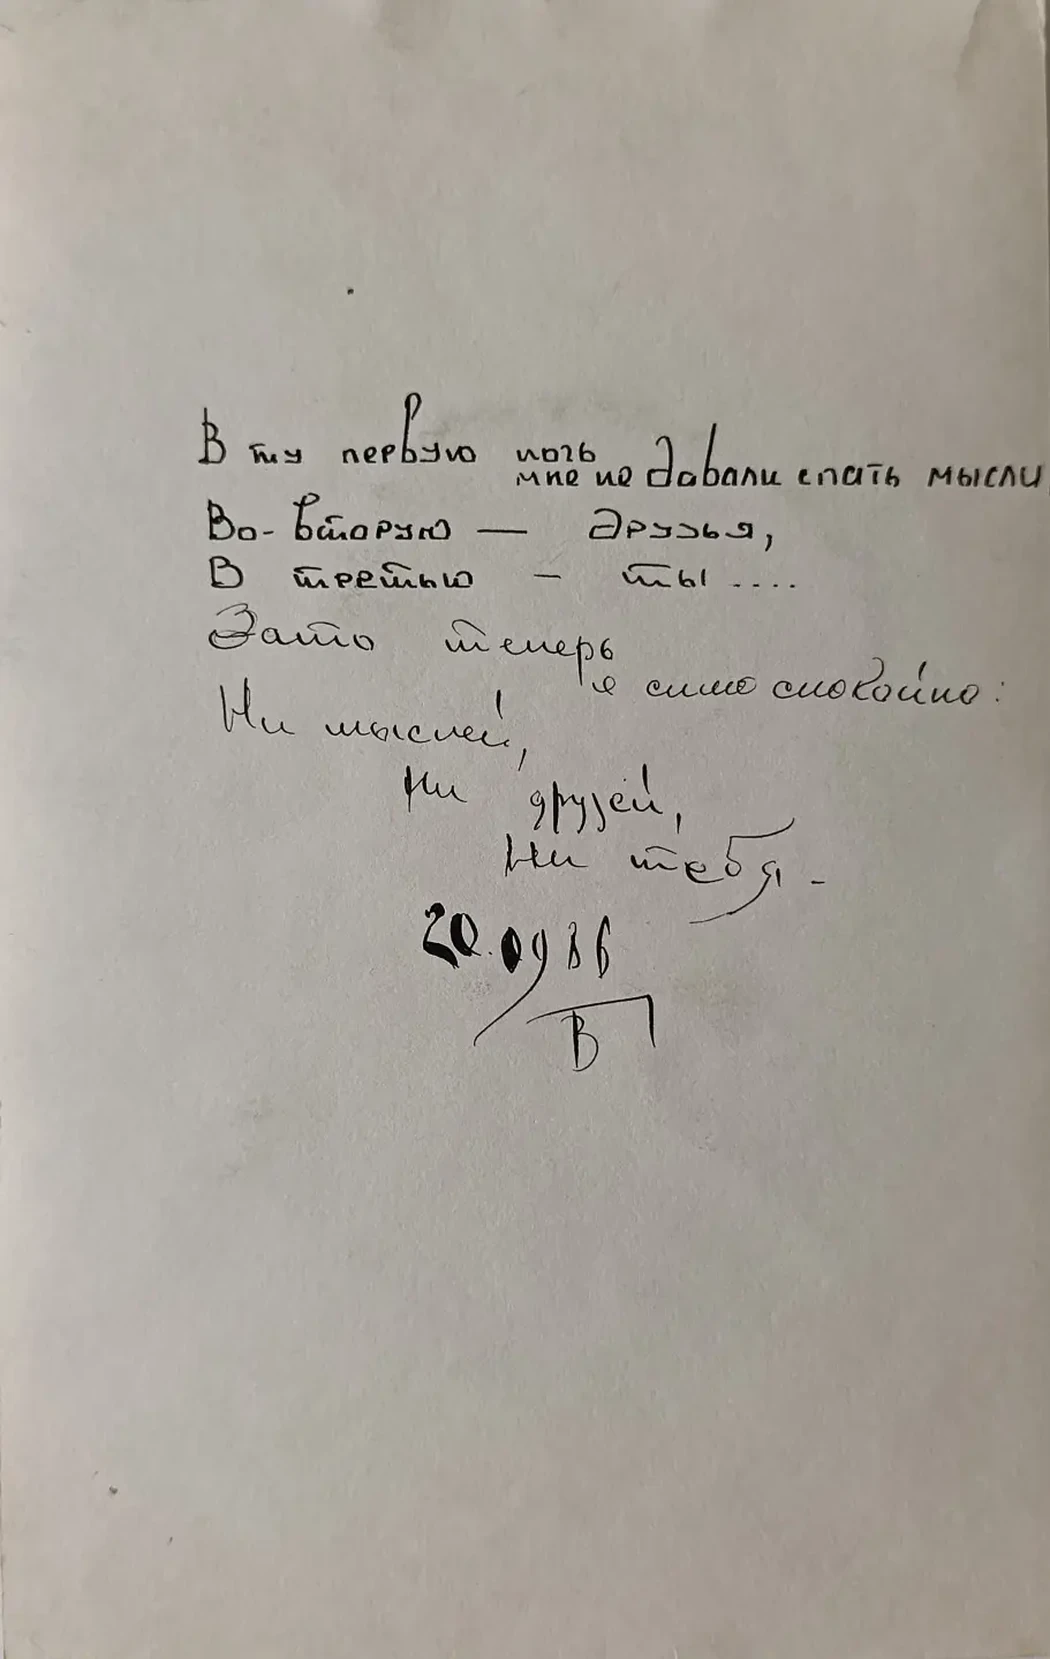 В ту первую ночь
мне не давали спать мысли
Во-вторую — друзья,
В третью – ты ....
Зато теперь
я сплю спокойно:
Ни мыслей,
Ни друзей,
Ни тебя.
20.09 86
В